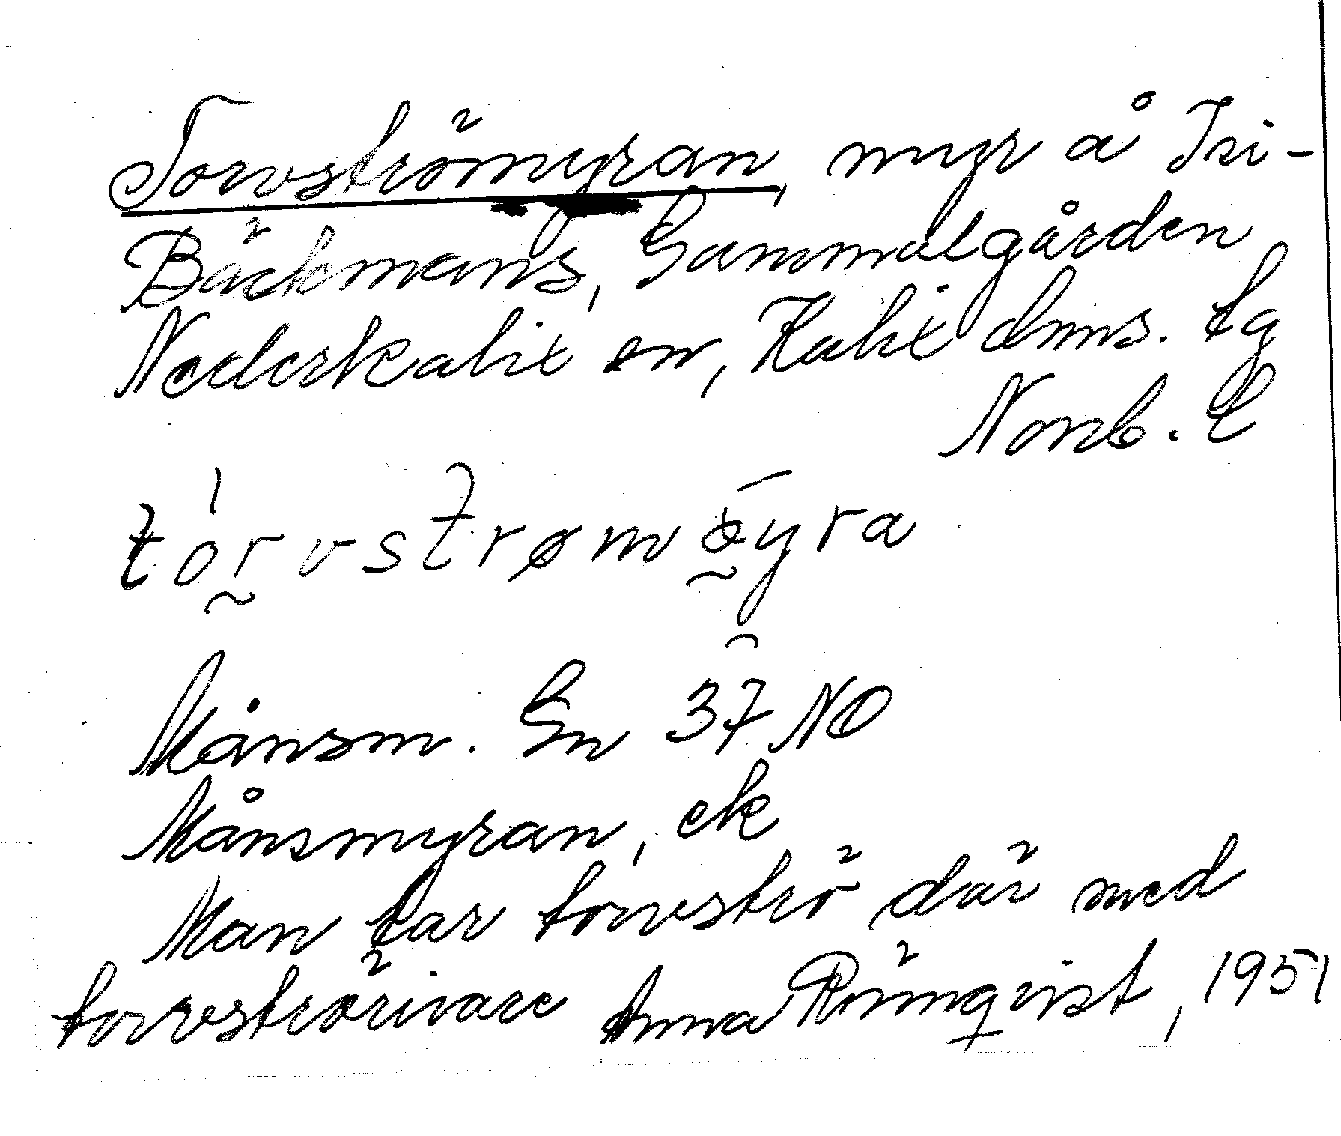 Torvströmyran, myr å Isi-
Bäckmans, Gammelgården
Nederkalix sn, Kalix dmns. tg
Norrb. L
tórvstrømøyra
Månsm. En 37 NO
Månsmyran, ek
Man tar torvströ där med
torvströrivare Anna Rönnqvist, 1951